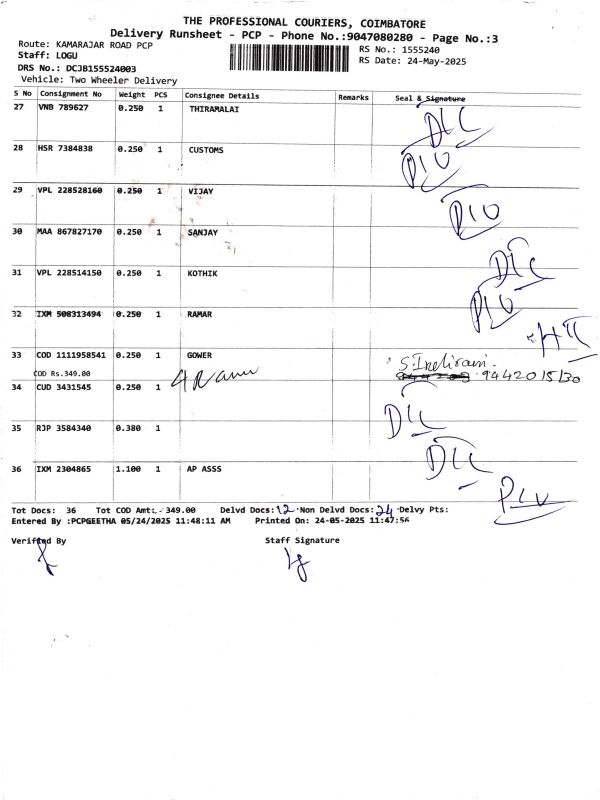 THE PROFESSIONAL COURIERS, COIMBATORE
Delivery Runsheet - PCP - Phone No.:9047080280 - Page No.:3
Route: KAMARAJAR ROAD PCP
RS No.: 1555240
Staff: LOGU
RS Date: 24-May-2025
DRS No.: DCJB155524003
Vehicle: Two Wheeler Delivery
S No Consignment No Weight PCS Consignee Details Remarks Seal & Signature
27 VNB 789627 0.250 1 THIRAMALAI
28 HSR 7384838 0.250 1 CUSTOMS
29 VPL 228528160 0.250 1 VIJAY
30 MAA 867827170 0.250 1 SANJAY
31 VPL 228514150 0.250 1 KOTHIK
32 IXM 508313494 0.250 1 RAMAR
33 COD 1111958541 0.250 1 GOWER
COD Rs.349.00
9442015130
34 CUD 3431545 0.250 1
35 RJP 3584340 0.380 1
36 IXM 2304865 1.100 1 AP ASSS
Tot Docs: 36 Tot COD Amt:- 349.00 Delvd Docs: 12 Non Delvd Docs: 24 Delvy Pts:
Entered By :PCPGEETHA 05/24/2025 11:48:11 AM Printed On: 24-05-2025 11:47:56
Verified By Staff Signature